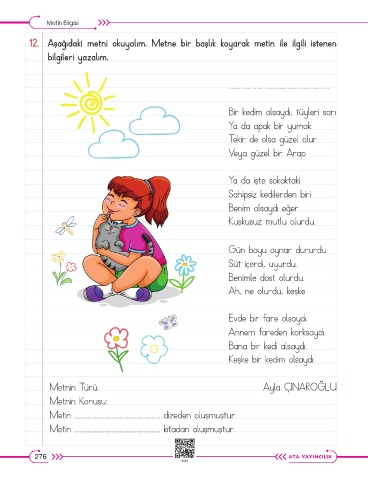 Metin Bilgisi
12. Aşağıdaki metni okuyalım. Metne bir başlık koyarak metin ile ilgili istenen
bilgileri yazalım.
Bir kedim olsaydı, tüyleri sarı
Ya da apak bir yumak
Tekir de olsa güzel olur
Veya güzel bir Arap
Ya da işte sokaktaki
Sahipsiz kedilerden biri
Benim olsaydı eğer
Kuşkusuz mutlu olurdu.
Gün boyu oynar dururdu
Süt içerdi, uyurdu.
Benimle dost olurdu.
Ah, ne olurdu, keşke
Evde bir fare olsaydı
Annem fareden korksaydı
Bana bir kedi alsaydı
Keşke bir kedim olsaydı.
Ayla ÇINAROĞLU
Metnin Türü:
Metnin Konusu:
Metin ........ dizeden oluşmuştur.
Metin ........ kıtadan oluşmuştur.
276
ATA YAYINCILIK